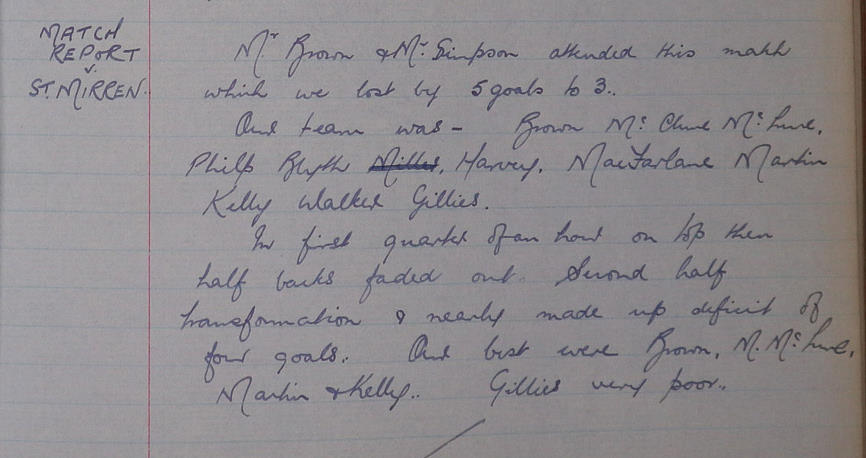 MATCH
REPORT
v
ST. MIRREN.
Mr Brown & Mr Simpson attended this match
which we lost by 5 goals to 3..
Our team was - Brown Mc Clure Mc Lure,
Philp Blyth Miller, Harvey, MacFarlane Martin
Kelly Walker Gillies.
In first quarter of an hour on top then
half backs faded out. Second half
transformation & nearly made up deficit of
four goals.. Our best were Brown, M. Mc Lure,
Martin & Kelly.. Gillies very poor..